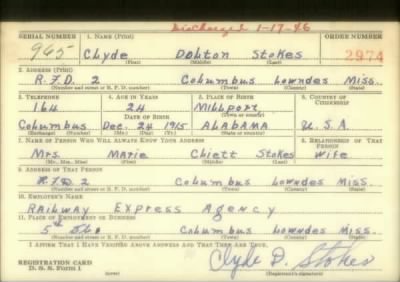 Discharged 1-17-46
SERIAL NUMBER 1. NAME (Print) ORDER NUMBER
965 Clyde Dolton Stokes 2974
(First) (Middle) (Last)
2. ADDRESS (Print)
R.F.D. 2 Columbus Lowndes Miss.
(Number and street or R. F. D. number) (Town) (County) (State)
3. TELEPHONE 4. AGE IN YEARS 5. PLACE OF BIRTH 6. COUNTRY OF CITIZENSHIP
164 24 Millport
DATE OF BIRTH (Town or county)
Columbus Dec. 24 1915 ALABAMA U.S.A.
(Exchange) (Number) (Mo.) (Day) (Yr.) (State or country)
7. NAME OF PERSON WHO WILL ALWAYS KNOW YOUR ADDRESS 8. RELATIONSHIP OF THAT PERSON
Mrs. Marie Chiett Stokes Wife
(Mr., Mrs., Miss) (First) (Middle) (Last)
9. ADDRESS OF THAT PERSON
R.F.D. 2 Columbus Lowndes Miss.
(Number and street or R. F. D. number) (Town) (County) (State)
10. EMPLOYER'S NAME
RAILWAY EXPRESS AGENCY
11. PLACE OF EMPLOYMENT OR BUSINESS
5th Columbus Lowndes Miss.
(Number and street or R. F. D. number) (Town) (County) (State)
I AFFIRM THAT I HAVE VERIFIED ABOVE ANSWERS AND THAT THEY ARE TRUE.
REGISTRATION CARD Clyde D. Stokes
D. S. S. Form 1 (over) (Registrant's signature)